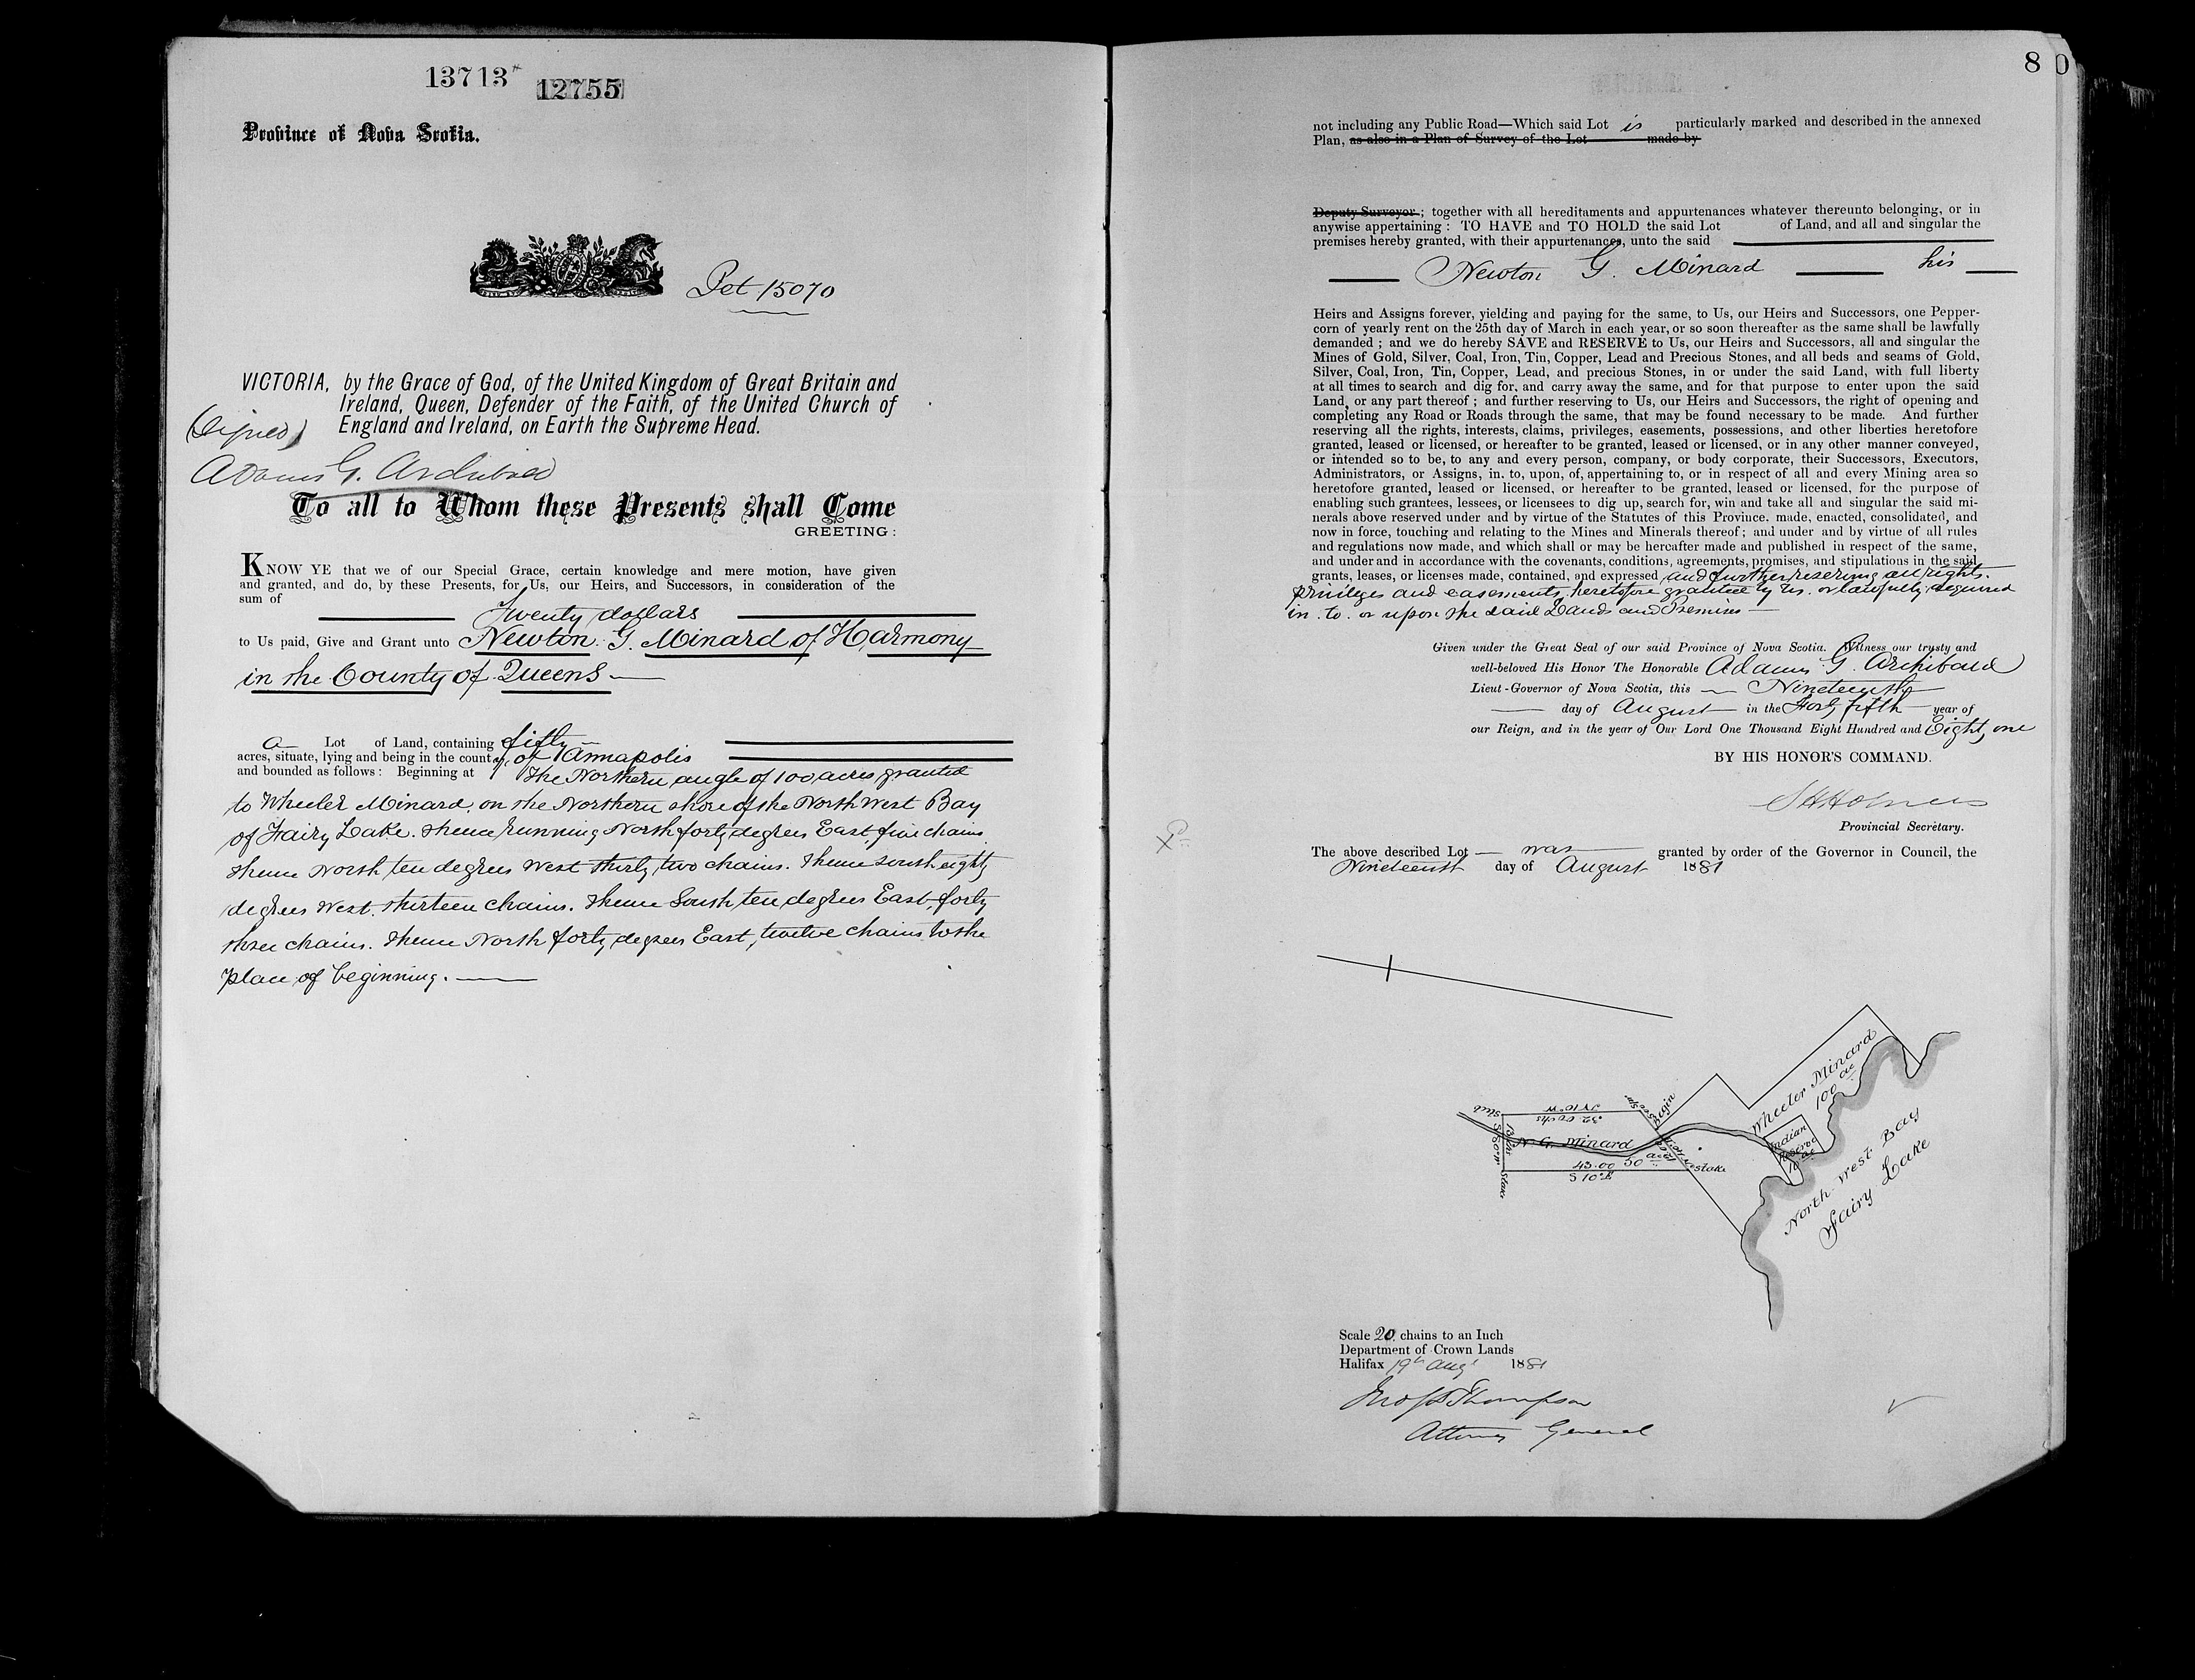 13713*
12755
Province of Nova Scotia.
Pet 15070
VICTORIA, by the Grace of God, of the United Kingdom of Great Britain and
Ireland, Queen, Defender of the Faith, of the United Church of
England and Ireland, on Earth the Supreme Head.
(Signed)
Adams G. Archibald
To all to Whom these Presents shall Come
GREETING:
KNOW YE that we of our Special Grace, certain knowledge and mere motion, have given
and granted, and do, by these Presents, for Us, our Heirs, and Successors, in consideration of the
sum of
Twenty dollars
to Us paid, Give and Grant unto Newton. G. Minard of Harmony
in the County of Queens
a Lot of Land, containing fifty
acres, situate, lying and being in the county of Annapolis
and bounded as follows: Beginning at the Northern angle of 100 acres granted
to Wheeler Minard. on the Northern shore of the North West Bay
of Fairy Lake. thence running North forty degrees East, five chains
thence North ten degrees West thirty two chains. thence south eighty
degrees West. thirteen chains. thence South ten degrees East, forty
three chains. thence North forty degrees East, twelve chains to the
place of beginning.
80
not including any Public Road—Which said Lot is particularly marked and described in the annexed
Plan, as also in a Plan of Survey of the Lot made by
Deputy Surveyor; together with all hereditaments and appurtenances whatever thereunto belonging, or in
anywise appertaining: TO HAVE and TO HOLD the said Lot of Land, and all and singular the
premises hereby granted, with their appurtenances, unto the said
Newton G. Minard his
Heirs and Assigns forever, yielding and paying for the same, to Us, our Heirs and Successors, one Pepper-
corn of yearly rent on the 25th day of March in each year, or so soon thereafter as the same shall be lawfully
demanded; and we do hereby SAVE and RESERVE to Us, our Heirs and Successors, all and singular the
Mines of Gold, Silver, Coal, Iron, Tin, Copper, Lead and Precious Stones, and all beds and seams of Gold,
Silver, Coal, Iron, Tin, Copper, Lead, and precious Stones, in or under the said Land, with full liberty
at all times to search and dig for, and carry away the same, and for that purpose to enter upon the said
Land, or any part thereof; and further reserving to Us, our Heirs and Successors, the right of opening and
completing any Road or Roads through the same, that may be found necessary to be made. And further
reserving all the rights, interests, claims, privileges, easements, possessions, and other liberties heretofore
granted, leased or licensed, or hereafter to be granted, leased or licensed, or in any other manner conveyed,
or intended so to be, to any and every person, company, or body corporate, their Successors, Executors,
Administrators, or Assigns, in, to, upon, of, appertaining to, or in respect of all and every Mining area so
heretofore granted, leased or licensed, or hereafter to be granted, leased or licensed, for the purpose of
enabling such grantees, lessees, or licensees to dig up, search for, win and take all and singular the said mi-
nerals above reserved under and by virtue of the Statutes of this Province, made, enacted, consolidated, and
now in force, touching and relating to the Mines and Minerals thereof; and under and by virtue of all rules
and regulations now made, and which shall or may be hereafter made and published in respect of the same,
and under and in accordance with the covenants, conditions, agreements, promises, and stipulations in the said
grants, leases, or licenses made, contained, and expressed and further reserving all rights.
privileges and easements, heretofore granted by Us. or lawfully acquired
in. to. or upon the said Lands and Premises
Given under the Great Seal of our said Province of Nova Scotia. Witness our trusty and
well-beloved His Honor The Honorable Adams G. Archibald
Lieut-Governor of Nova Scotia, this Nineteenth
day of August in the Forty fifth year of
our Reign, and in the year of Our Lord One Thousand Eight Hundred and Eighty one
BY HIS HONOR'S COMMAND.
S H Holmes
Provincial Secretary.
The above described Lot was granted by order of the Governor in Council, the
Nineteenth day of August 1881
Wheeler Minard
100 ac
Indian
Reserve
10 ac
North west Bay
Fairy Lake
Begin
N 10° W
32 Chs
Stub
S 80° W
Stake
N. G. Minard
50 acres
43.00
S 10° E
Stake
Scale 20 chains to an Inch
Department of Crown Lands
Halifax 19th Augt 1881
Jno S D Thompson
Attorney General